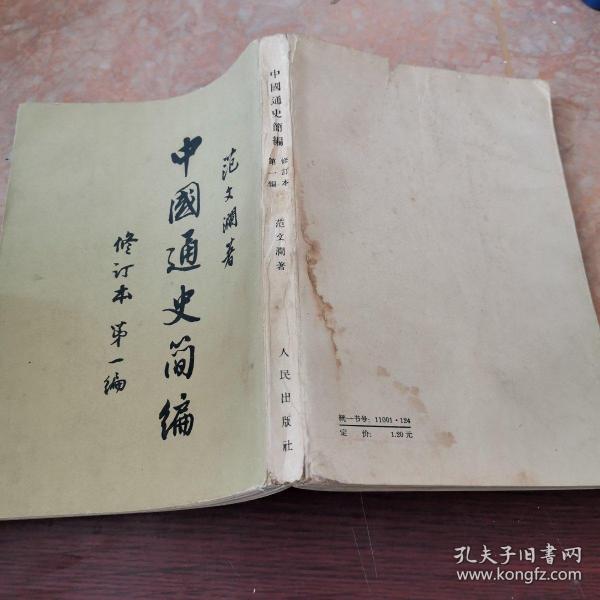 范文瀾著
中國通史简編
修訂本 第一編
中國通史簡編
修訂本
第一編
范文瀾著
人民出版社
統一书号：11001·124
定价：1.20元
孔夫子旧书网
www.kongfz.com